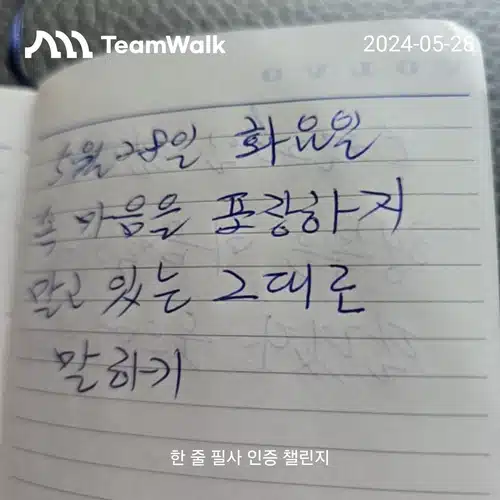 TeamWalk
2024-05-28
VOLVO
5월 28일 화요일
속 마음을 포장하지
말고 있는 그대로
말하기
한 줄 필사 인증 챌린지